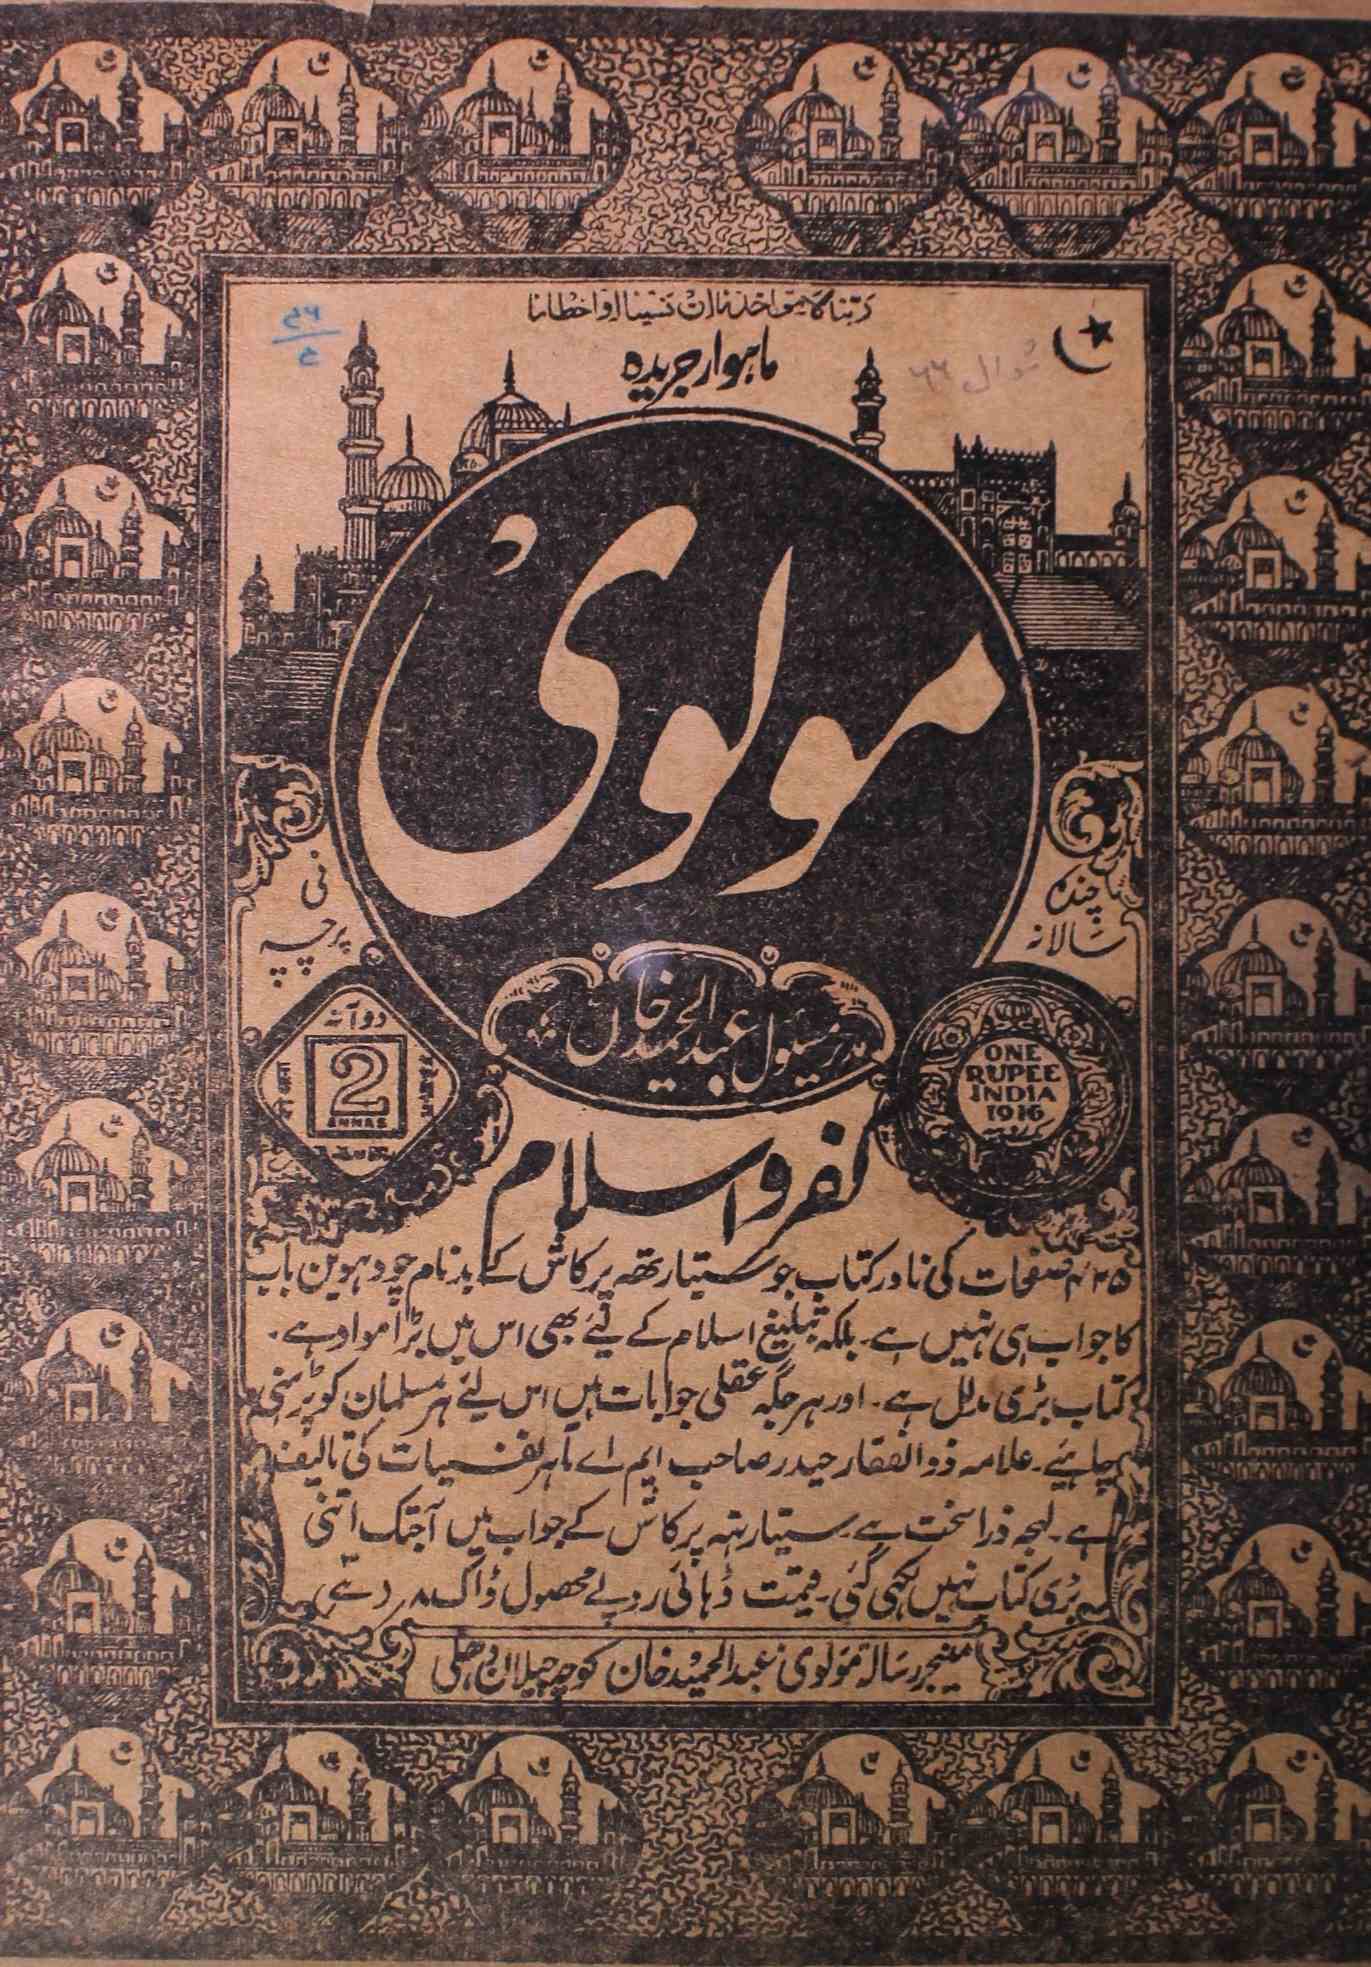 ربنا لا تواخذنا ان نسینا او اخطانا
ماہوار جریدہ
شوال ۶۶
مولوی
چندہ سالانہ
فی پرچہ
مدیر مسئول عبدالحمید خاں
ONE
RUPEE
INDIA
1916
دو آنہ
2
ANNAS
کفر و اسلام
۴۲۵ صفحات کی نادر کتاب جو ستیارتھ پرکاش کے بدنام چودہوین باب
کا جواب ہی نہیں ہے۔ بلکہ تبلیغ اسلام کے لیئے بھی اس میں بڑا مواد ہے۔
کتاب بڑی مدلل ہے۔ اور ہر جگہ عقلی جوابات ہیں اس لیئے ہر مسلمان کو پڑہنی
چاہیئے۔ علامہ ذوالفقار حیدر صاحب ایم اے ماہر نفسیات کی تالیف
ہے۔ لہجہ ذرا سخت ہے۔ ستیارتہ پرکاش کے جواب میں آجتک اتنی
بڑی کتاب نہیں لکھی گئی۔ قیمت ڈہائی روپے محصول ڈاک ۸؍
منیجر رسالہ مولوی عبدالحمید خان کوچہ چیلان دہلی